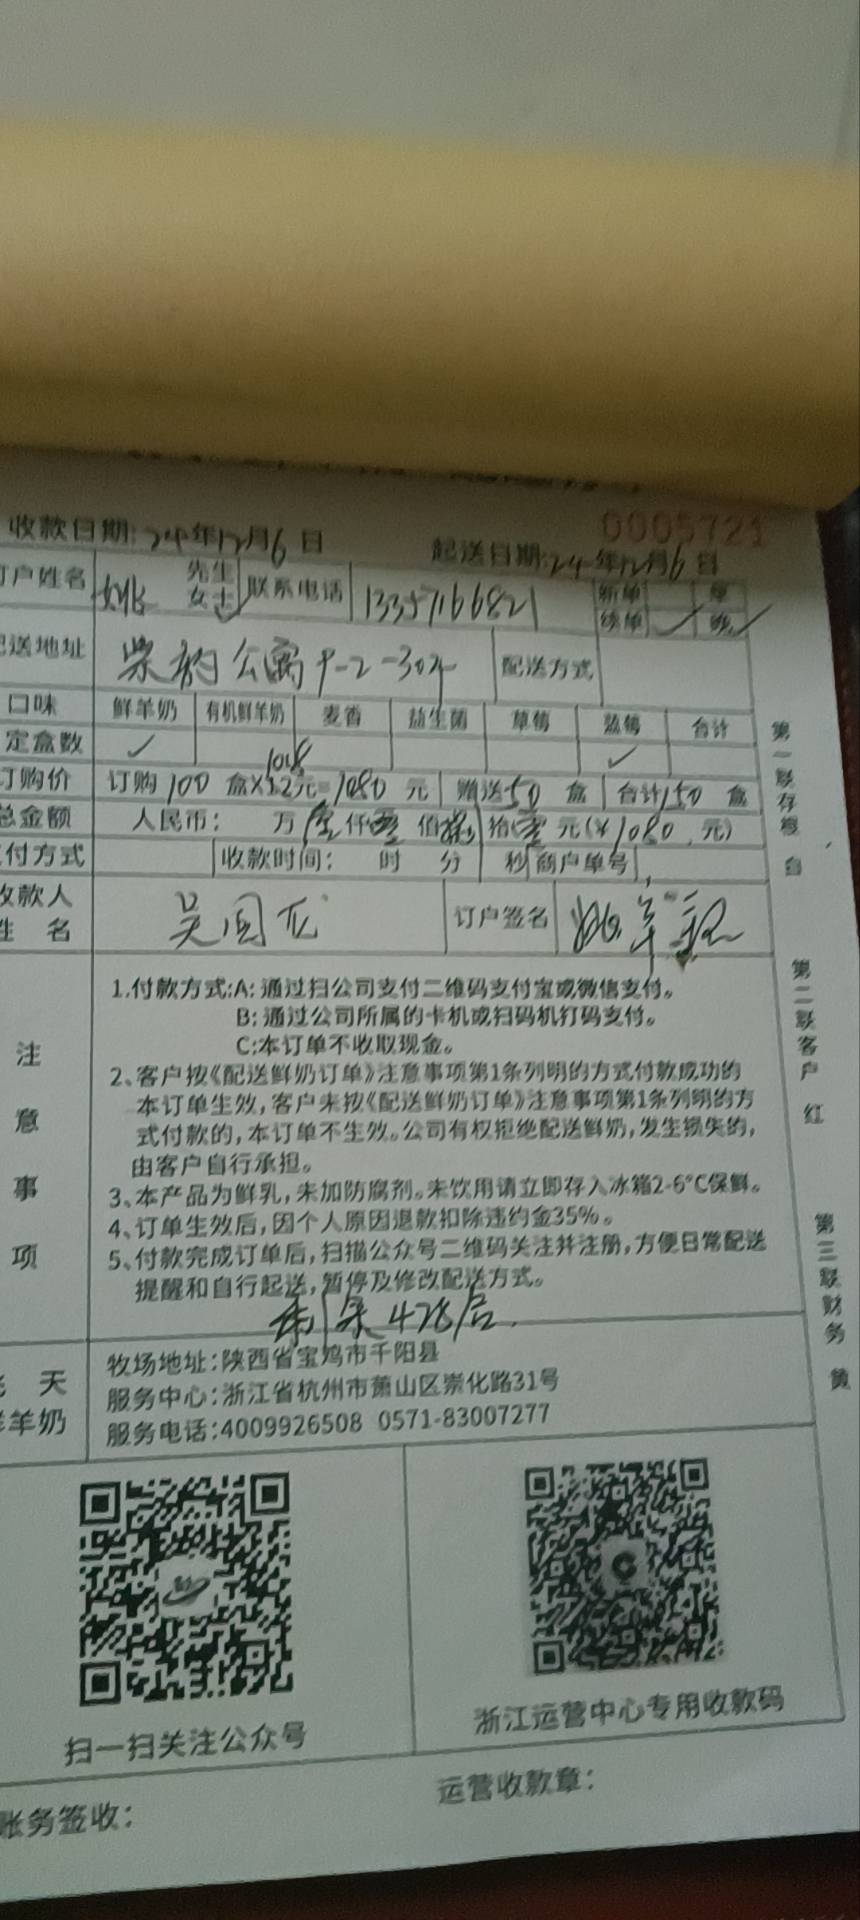 0005721
收款日期:24年12月6日 起送日期:24年12月6日
户姓名 姚 先生 女士 联系电话 13357166821 新单 续单
送地址 公寓 9-2-304 配送方式
口味 鲜羊奶 有机鲜羊奶 麦香 益生菌 草莓 蓝莓 合计
定盒数 ✓ ✓
订购价 订购100盒× 元=1080元 赠送50盒 合计150盒
总金额 人民币: 万壹仟零佰捌拾零元(¥1080元)
付方式 收款时间: 时 分 秒 商户单号
收款人姓名 吴国 订户签名 姚
注意事项
1.付款方式:A:通过扫公司支付二维码支付宝或微信支付。
B:通过公司所属的卡机或扫码机打码支付。
C:本订单不收取现金。
2、客户按《配送鲜奶订单》注意事项第1条列明的方式付款成功的
本订单生效,客户未按《配送鲜奶订单》注意事项第1条列明的方
式付款的,本订单不生效。公司有权拒绝配送鲜奶,发生损失的,
由客户自行承担。
3、本产品为鲜乳,未加防腐剂。未饮用请立即存入冰箱2-6°C保鲜。
4、订单生效后,因个人原因退款扣除违约金35%。
5、付款完成订单后,扫描公众号二维码关注并注册,方便日常配送
提醒和自行起送,暂停及修改配送方式。
剩余428
天
羊奶
牧场地址:陕西省宝鸡市千阳县
服务中心:浙江省杭州市萧山区崇化路31号
服务电话:4009926508 0571-83007277
第一联存根 白
第二联客户 红
第三联财务 黄
扫一扫关注公众号
浙江运营中心专用收款码
账务签收:
运营收款章: